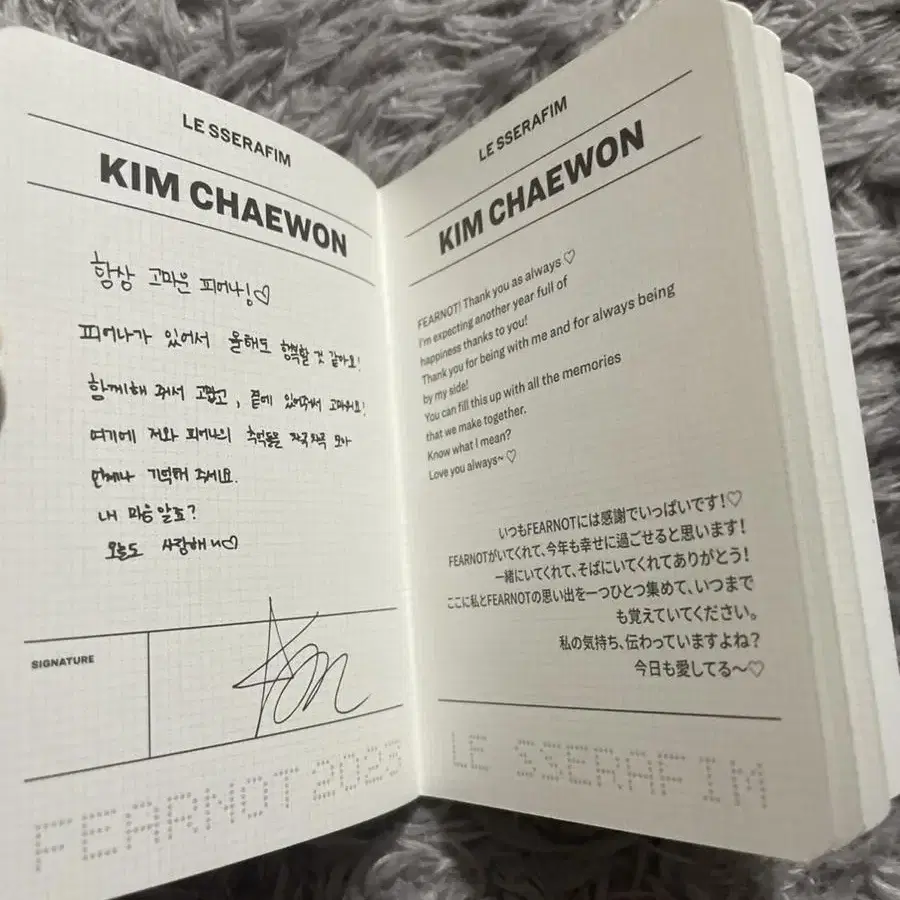 LE SSERAFIM
KIM CHAEWON
항상 고마운 피어나!♡
피어나가 있어서 올해도 행복할 것 같아요!
함께해 줘서 고맙고, 곁에 있어줘서 고마워요!
여기에 저와 피어나의 추억들을 차곡차곡 모아
언제나 기억해 주세요.
내 마음 알죠?
오늘도 사랑해~♡
SIGNATURE
FEARNOT 2023
LE SSERAFIM
KIM CHAEWON
FEARNOT! Thank you as always ♡
I'm expecting another year full of
happiness thanks to you!
Thank you for being with me and for always being
by my side!
You can fill this up with all the memories
that we make together.
Know what I mean?
Love you always~ ♡
いつもFEARNOTには感謝でいっぱいです!♡
FEARNOTがいてくれて、今年も幸せに過ごせると思います!
一緒にいてくれて、そばにいてくれてありがとう!
ここに私とFEARNOTの思い出を一つひとつ集めて、いつまで
も覚えていてください。
私の気持ち、伝わっていますよね?
今日も愛してる〜♡
LE SSERAFIM